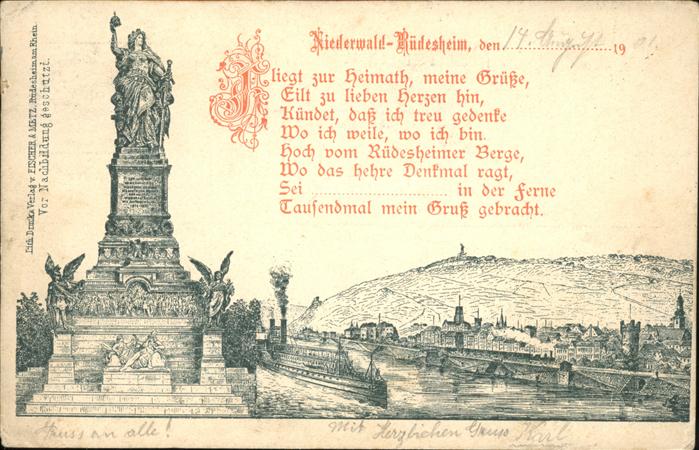 Niederwald-Rüdesheim, den 14. August 1901.
Fliegt zur Heimath, meine Grüße,
Eilt zu lieben Herzen hin,
Kündet, daß ich treu gedenke
Wo ich weile, wo ich bin.
Hoch vom Rüdesheimer Berge,
Wo das hehre Denkmal ragt,
Sei ........................ in der Ferne
Tausendmal mein Gruß gebracht.
Lith. Druck u. Verlag v. FISCHER & METZ, Rüdesheim am Rhein.
Vor Nachbildung geschützt.
Gruss an alle!
Mit Herzlichen Gruss Karl